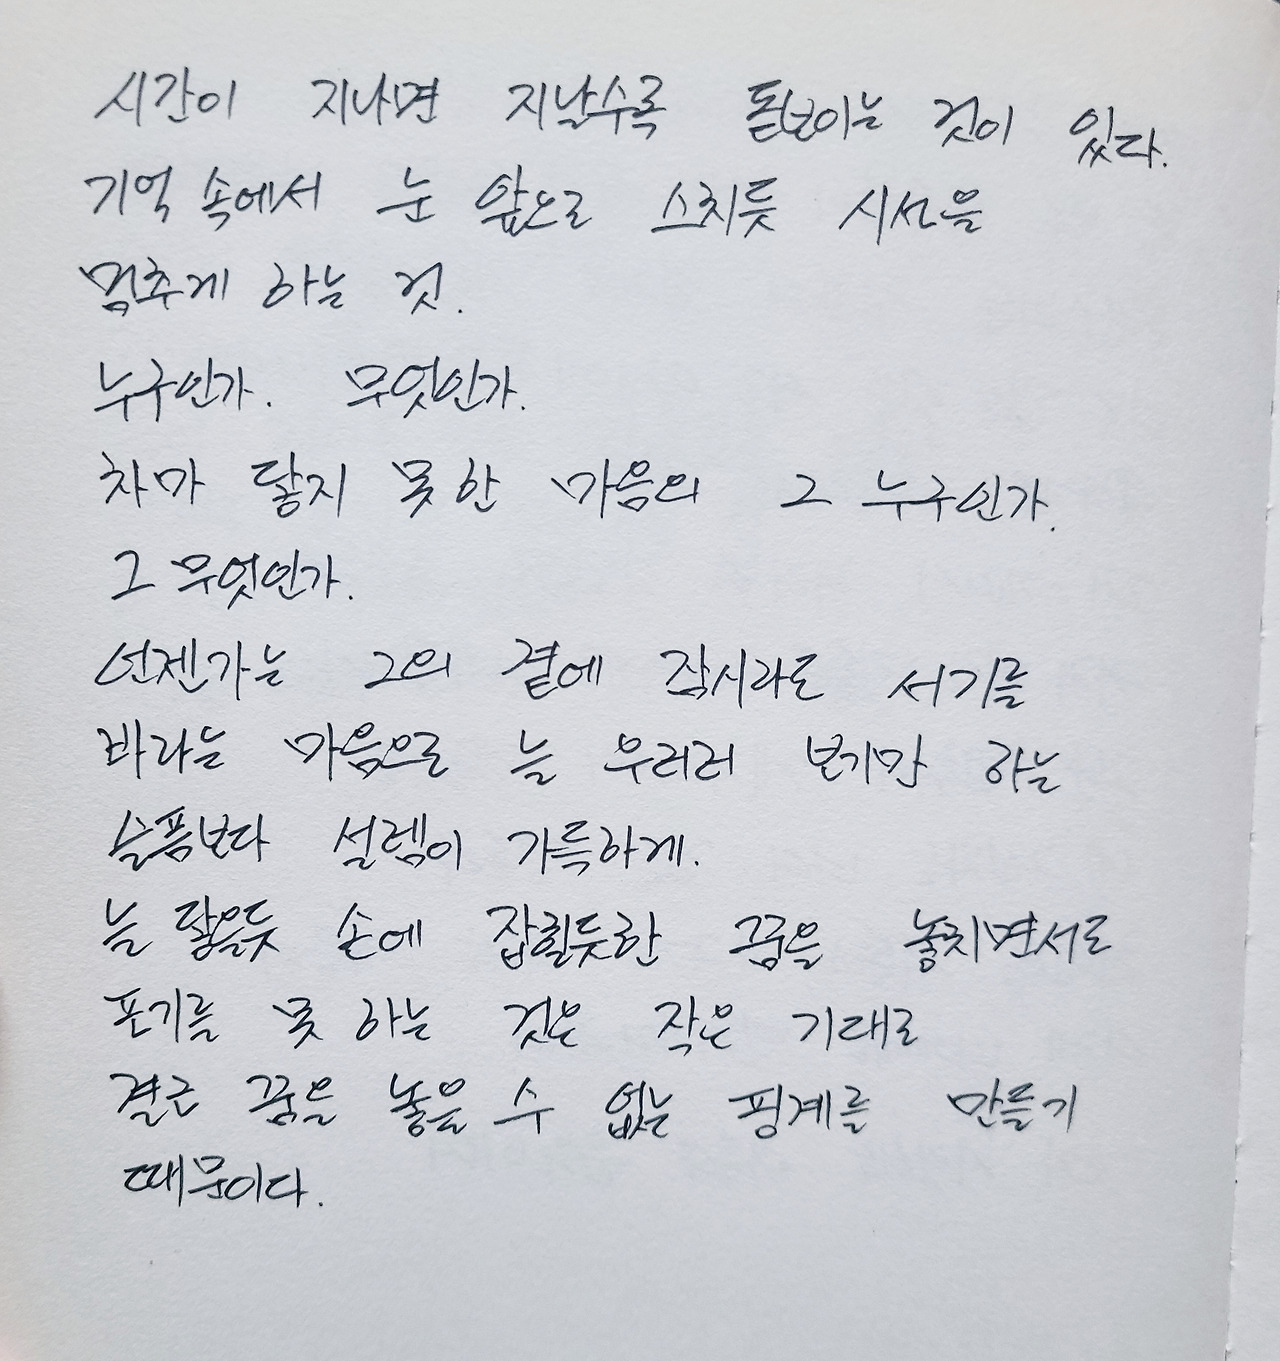 시간이 지나면 지날수록 돋보이는 것이 있다.
기억 속에서 눈 앞으로 스치듯 시선을
멈추게 하는 것.
누구인가. 무엇인가.
차마 닿지 못 한 마음의 그 누구인가.
그 무엇인가.
언젠가는 그의 곁에 잠시라도 서기를
바라는 마음으로 늘 우러러 보기만 하는
슬픔보다 설렘이 가득하게.
늘 닿을듯 손에 잡힐듯한 꿈을 놓치면서도
포기를 못 하는 것은 작은 기대로
결국 꿈을 놓을 수 없는 핑계를 만들기
때문이다.